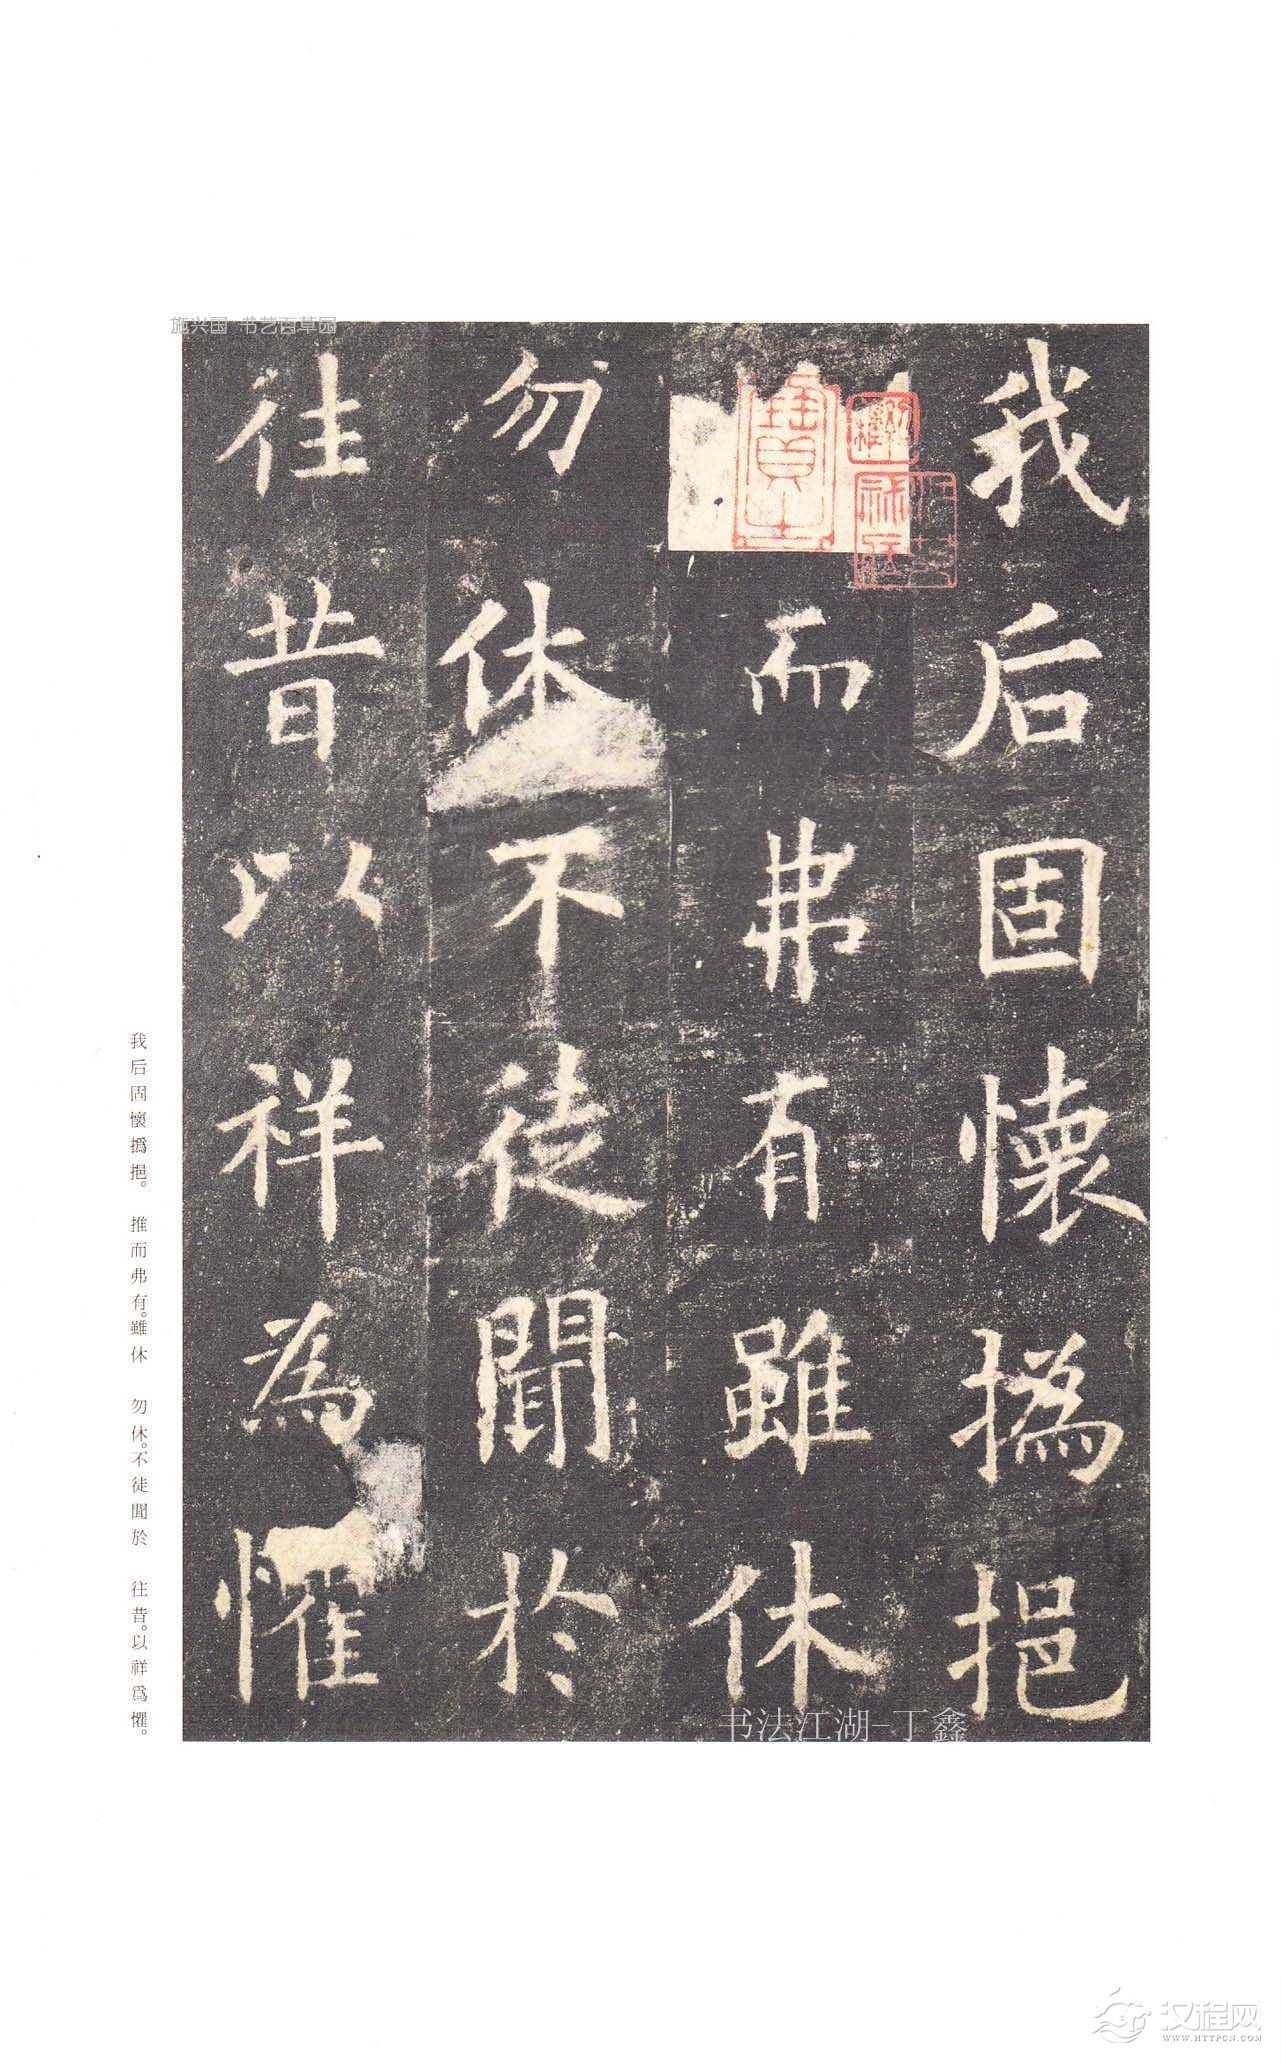 施兴国 书艺百草园
我后固懷撝挹
而弗有雖休
勿休不徒聞於
往昔以祥為懼
我后固懷撝挹。 推而弗有。雖休 勿休。不徒聞於 往昔。以祥爲懼。
书法江湖-丁鑫
汉程网
WWW.HTTPCN.COM